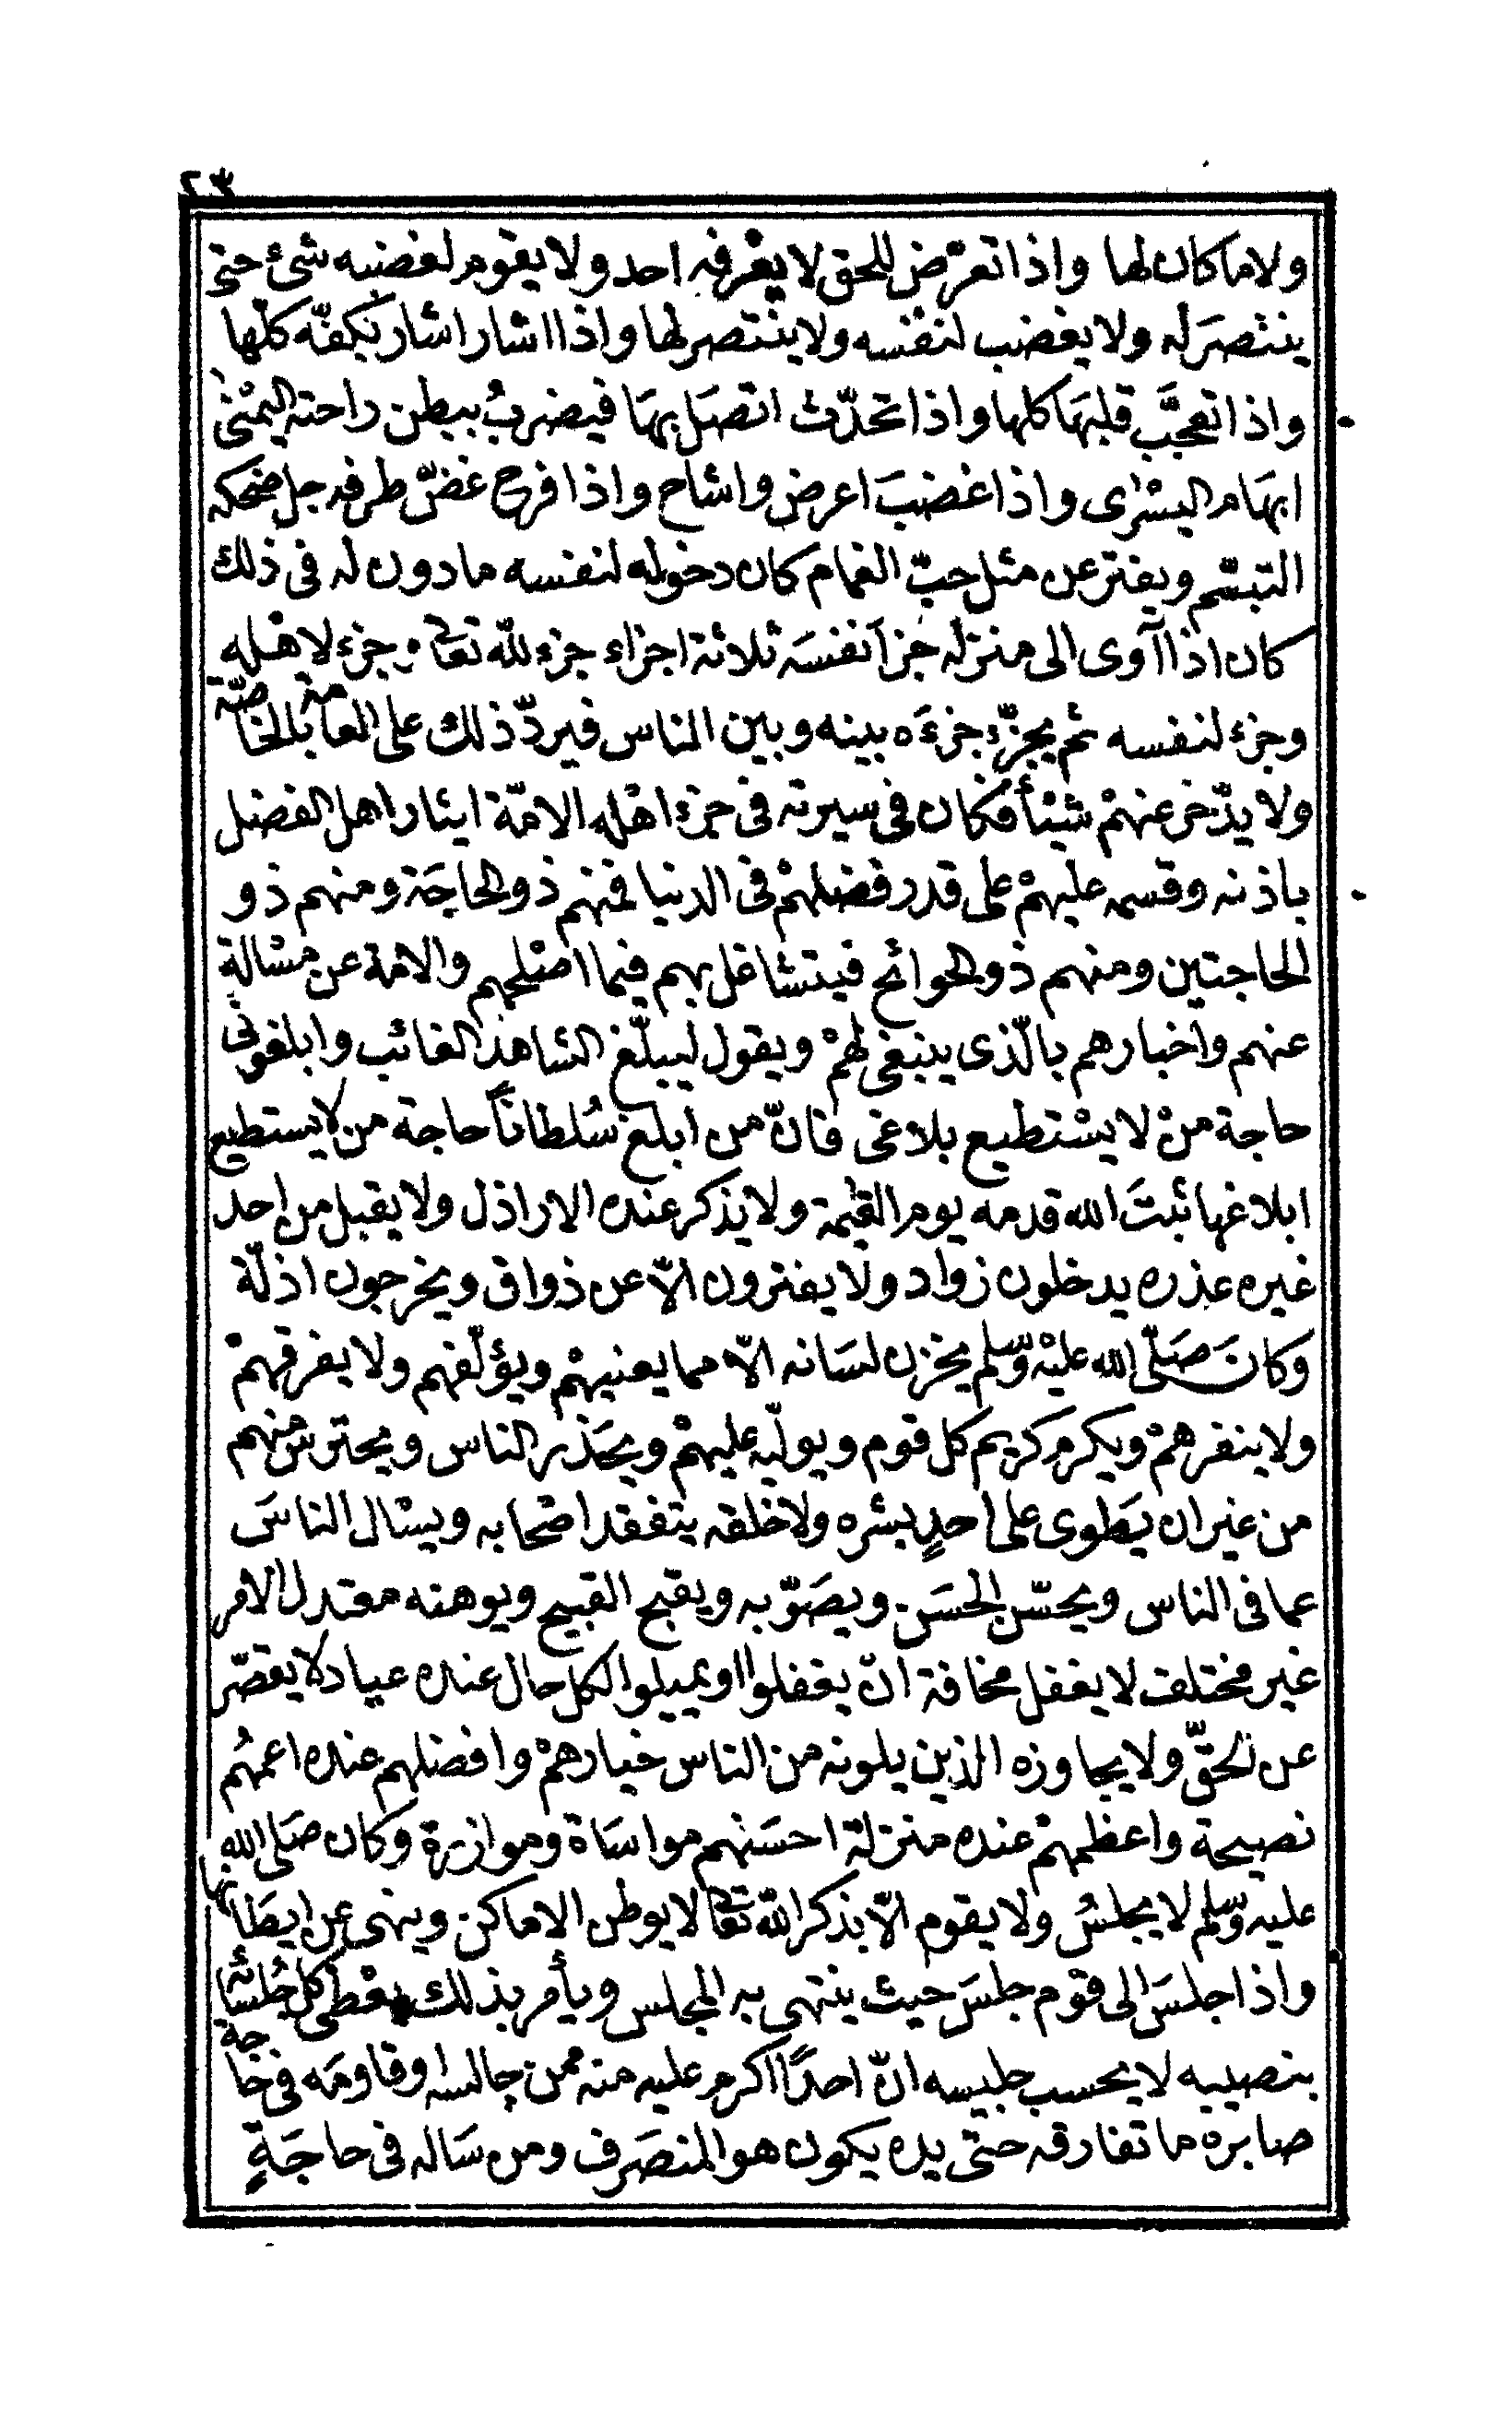 ٢٣
ولا ما كان لها واذا تعرّض للحق لا يعْرفه احد ولا يقوم لغضبه شئ حتى
ينتصرَ له ولا يغضب لنفْسه ولا ينتصر لها واذا اشار اشار بكفّه كلّها
واذا تعجَّب قلبهَا كلها واذا تحدّث اتصَل بهَا فيضربُ ببطن راحته اليمْنىٰ
ابهَام اليسْرٰى واذا غضبَ اعرض واشاح واذا فرح غضّ طرفه جل ضحكه
التبسّم ويفتر عن مثل حبّ الغمام كان دخوله لنفسه ما دون له فى ذلك
كان اذا آوى الى منزله جزأ نفسَه ثلاثة اجزاء جزء للّه تعالى وجزء لاهْله
وجزء لنفسه ثم يجزّء جزءَه بينه وبين الناس فيردّ ذلك على العامة بالخاصّة
ولا يدّخر عنهمْ شيْأ فكان فى سيرته فى جزء اهْله الامّة ايثار اهل الفضل
باذنه وقسمه عليهمْ على قدر فضلهمْ فى الدنيا فمنهم ذو الحاجَة ومنهم ذو
الحاجتين ومنهم ذو الحوائج فيتشاغل بهم فيما اصْلحهم والامة عن مسْالة
عنهم واخبارهم بالّذى ينبغى لهمْ ويقول ليبلّغ الشاهد الغائب وابلغونى
حاجة منْ لا يسْتطيع بلاغى فانّ من ابلغ سُلطاناً حاجة من لا يستطيع
ابلاغها ثبتَ الله قدمه يوم القيٰمة ولا يذكر عنده الا اراذل ولا يقبل من احد
غيره عذره يدخلون زواد ولا يفترون الاّ عن ذواق ويخرجون اذلّة
وكانَ صَلّى الله عليْه وسّلم يخزن لسَانه الاّ مما يعنيهمْ ويؤلّفهم ولا يفرقهمْ
ولا ينفرهمْ ويكرم كريم كل قوم ويولّيه عليهمْ ويحَذر الناس ويحترس منهم
من غير ان يَطوى على احدٍ بشره ولا خلقه يتفقد اصْحابه ويسْال الناسَ
عما فى الناس ويحسّن الحسَن ويصَوّبه ويقبح القبيح ويوهنه معتدل الامر
غير مختلف لا يغفل مخافة انّ يغفلوا او يميلوا لكل حال عنده عياد لا يقصّر
عن الحقّ ولا يجاوزه الذين يلونه من الناس خيارهمْ وافضلهم عنده اعمهُم
نصيحة واعظمهمْ عنده منزلة احسَنهم مواسَاة وموازرة وكان صَلى الله
عليه وسّلم لا يجلسُ ولا يقوم الاّ بذكر اللّه تعالى لا يوطن الاماكن وينهى عن ايطَانها
واذا جلسَ الى قوم جلسَ حيث ينتهى به المجلس ويأمر بذلك يعْطى كل جُلسَائه
بنصيبه لا يحسب جليسه انّ احدًا اكرم عليه منه ممن جالسه او قاومَه فى حاجة
صابره ما تفارقه حتى يده يكون هو المنصَرف ومن سَاله فى حاجَةٍ